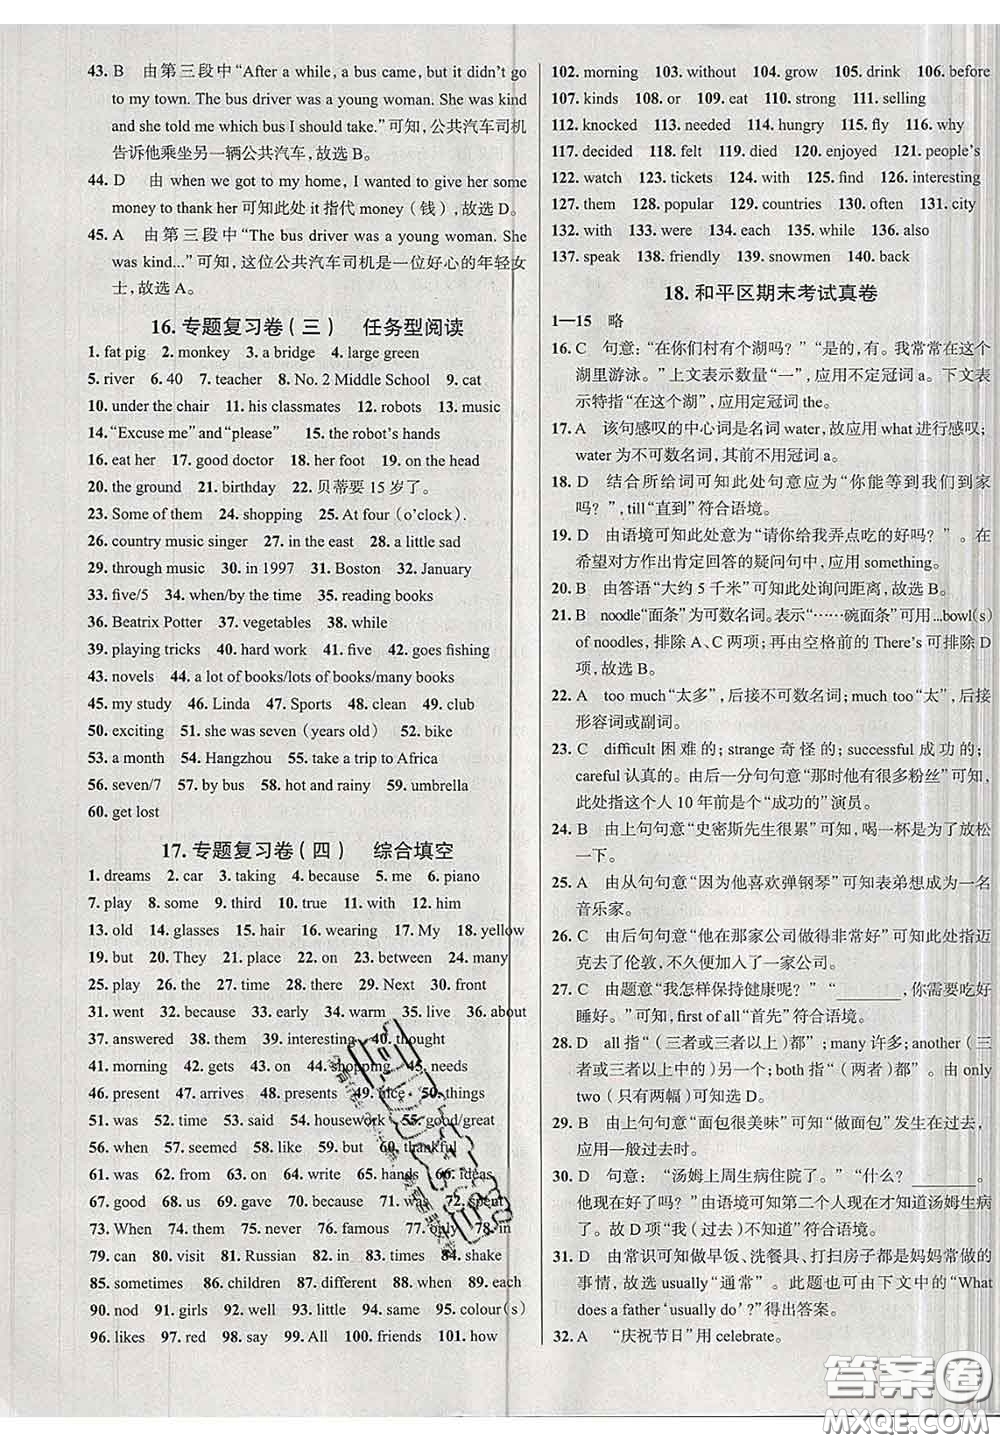 43. B 由第三段中“After a while, a bus came, but it didn't go
to my town. The bus driver was a young woman. She was kind
and she told me which bus I should take.”可知,公共汽车司机
告诉他乘坐另一辆公共汽车,故选B。
44. D 由 when we got to my home, I wanted to give her some
money to thank her 可知此处 it 指代 money（钱）,故选D。
45. A 由第三段中“The bus driver was a young woman. She
was kind...”可知,这位公共汽车司机是一位好心的年轻女
士,故选A。
16. 专题复习卷(三) 任务型阅读
1. fat pig 2. monkey 3. a bridge 4. large green
5. river 6. 40 7. teacher 8. No. 2 Middle School 9. cat
10. under the chair 11. his classmates 12. robots 13. music
14. “Excuse me” and “please” 15. the robot's hands
16. eat her 17. good doctor 18. her foot 19. on the head
20. the ground 21. birthday 22. 贝蒂要15岁了。
23. Some of them 24. shopping 25. At four (o'clock).
26. country music singer 27. in the east 28. a little sad
29. through music 30. in 1997 31. Boston 32. January
33. five/5 34. when/by the time 35. reading books
36. Beatrix Potter 37. vegetables 38. while
39. playing tricks 40. hard work 41. five 42. goes fishing
43. novels 44. a lot of books/lots of books/many books
45. my study 46. Linda 47. Sports 48. clean 49. club
50. exciting 51. she was seven (years old) 52. bike
53. a month 54. Hangzhou 55. take a trip to Africa
56. seven/7 57. by bus 58. hot and rainy 59. umbrella
60. get lost
17. 专题复习卷(四) 综合填空
1. dreams 2. car 3. taking 4. because 5. me 6. piano
7. play 8. some 9. third 10. true 11. with 12. him
13. old 14. glasses 15. hair 16. wearing 17. My 18. yellow
19. but 20. They 21. place 22. on 23. between 24. many
25. play 26. the 27. time 28. there 29. Next 30. front
31. went 32. about 33. early 34. warm 35. live 36. about
37. answered 38. them 39. interesting 40. thought
41. morning 42. gets 43. on 44. shopping 45. needs
46. present 47. arrived 48. presents 49. nice 50. things
51. was 52. time 53. said 54. housework 55. good/great
56. when 57. seemed 58. like 59. but 60. thankful
61. while 62. and 63. as 64. write 65. makes 66. ideas
67. good 68. us 69. gave 70. because 71. was 72. spent
73. When 74. them 75. never 76. famous 77. only 78. in
79. can 80. visit 81. Russian 82. from 83. times 84. shake
85. sometimes 86. children 87. different 88. when 89. each
90. nod 91. girls 92. well 93. little 94. same 95. colour(s)
96. likes 97. red 98. say 99. All 100. friends 101. how
102. morning 103. without 104. grow 105. drink 106. before
107. kinds 108. or 109. eat 110. strong 111. selling
112. knocked 113. needed 114. hungry 115. fly 116. why
117. decided 118. felt 119. died 120. enjoyed 121. people's
122. watch 123. tickets 124. with 125. find 126. interesting
127. them 128. popular 129. countries 130. often 131. city
132. with 133. were 134. each 135. while 136. also
137. speak 138. friendly 139. snowmen 140. because
18. 和平区期末考试真卷
1—15 略
16. C 句意:“在你们村有个湖吗?”“是的,有。我常常在这个
湖里游泳。”上文表示数量“一”,应用不定冠词a。下文表
示特指“在这个湖”,应用定冠词 the。
17. A 该句感叹的中心词是名词 water,故应用 what 进行感叹;
water 为不可数名词,其前不用冠词a。
18. D 结合所给词可知此处句意应为“你能等到我们到家
吗?”,till“直到”符合语境。
19. D 由语境可知此处意为“请你给我弄点吃的好吗?”。在
希望对方作出肯定回答的疑问句中,应用 something。
20. B 由答语“大约5千米”可知此处询问距离,故选B。
21. B noodle“面条”为可数名词。表示“……碗面条”可用 ...bowl(s)
of noodles,排除A、C两项;再由空格前的 There's 可排除D
项,故选B。
22. A too much“太多”,后接不可数名词;much too“太”,后接
形容词或副词。
23. C difficult 困难的;strange 奇怪的;successful 成功的;
careful 认真的。由后一分句句意“那时他有很多粉丝”可知,
此处指这个人10年前是个“成功的”演员。
24. B 由上句句意“史密斯先生很累”可知,喝一杯是为了放松
一下。
25. A 由从句句意“因为他喜欢弹钢琴”可知表弟想成为一名
音乐家。
26. C 由后句句意“他在那家公司做得非常好”可知此处指迈
克去了伦敦,不久便加入了一家公司。
27. C 由题意“我怎样保持健康呢?”“________,你需要吃好
睡好。”可知,first of all“首先”符合语境。
28. D all 指“(三者或三者以上)都”;many 许多;another(三
者或三者以上中的)另一个;both 指“(两者)都”。由 only
two(只有两幅)可知选D。
29. B 由上句句意“面包很美味”可知“做面包”发生在过去,
应用一般过去时。
30. D 句意:“汤姆上周生病住院了。”“什么?________。
他现在好了吗?”由语境可知第二个人现在才知道汤姆生病
了。故D项“我(过去)不知道”符合语境。
31. D 由常识可知做早饭、洗餐具、打扫房子都是妈妈常做的
事情,故选 usually“通常”。此题也可由下文中的“What
does a father ‘usually do’?”得出答案。
32. A “庆祝节日”用 celebrate。
答案卷
MXQE.COM